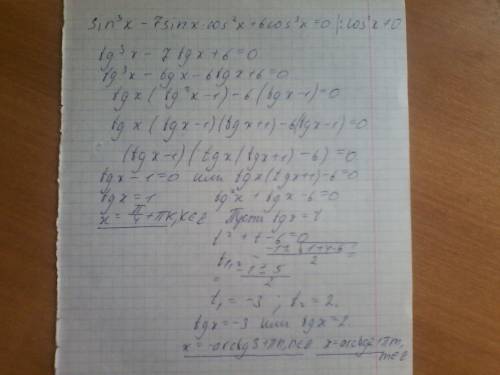 sin³x - 7sinx·cos²x + 6cos³x = 0 |: cos³x ≠ 0
tg³x - 7 tgx + 6 = 0
tg³x - tgx - 6tgx + 6 = 0
tgx ( tg²x - 1) - 6 (tgx - 1) = 0
tgx ( tgx - 1) (tgx + 1) - 6(tgx - 1) = 0
(tgx - 1) ( tgx (tgx + 1) - 6) = 0
tgx - 1 = 0 или tgx (tgx + 1) - 6 = 0
tgx = 1 tg²x + tgx - 6 = 0
x = π/4 + πk, k∈Z Пусть tgx = t
t² + t - 6 = 0
t₁,₂ = (-1 ± √1+4·6)/2 =
= (-1 ± 5)/2
t₁ = -3 ; t₂ = 2.
tgx = -3 или tgx = 2
x = -arctg3 + πn, n∈Z x = arctg2 + πm,
m∈Z